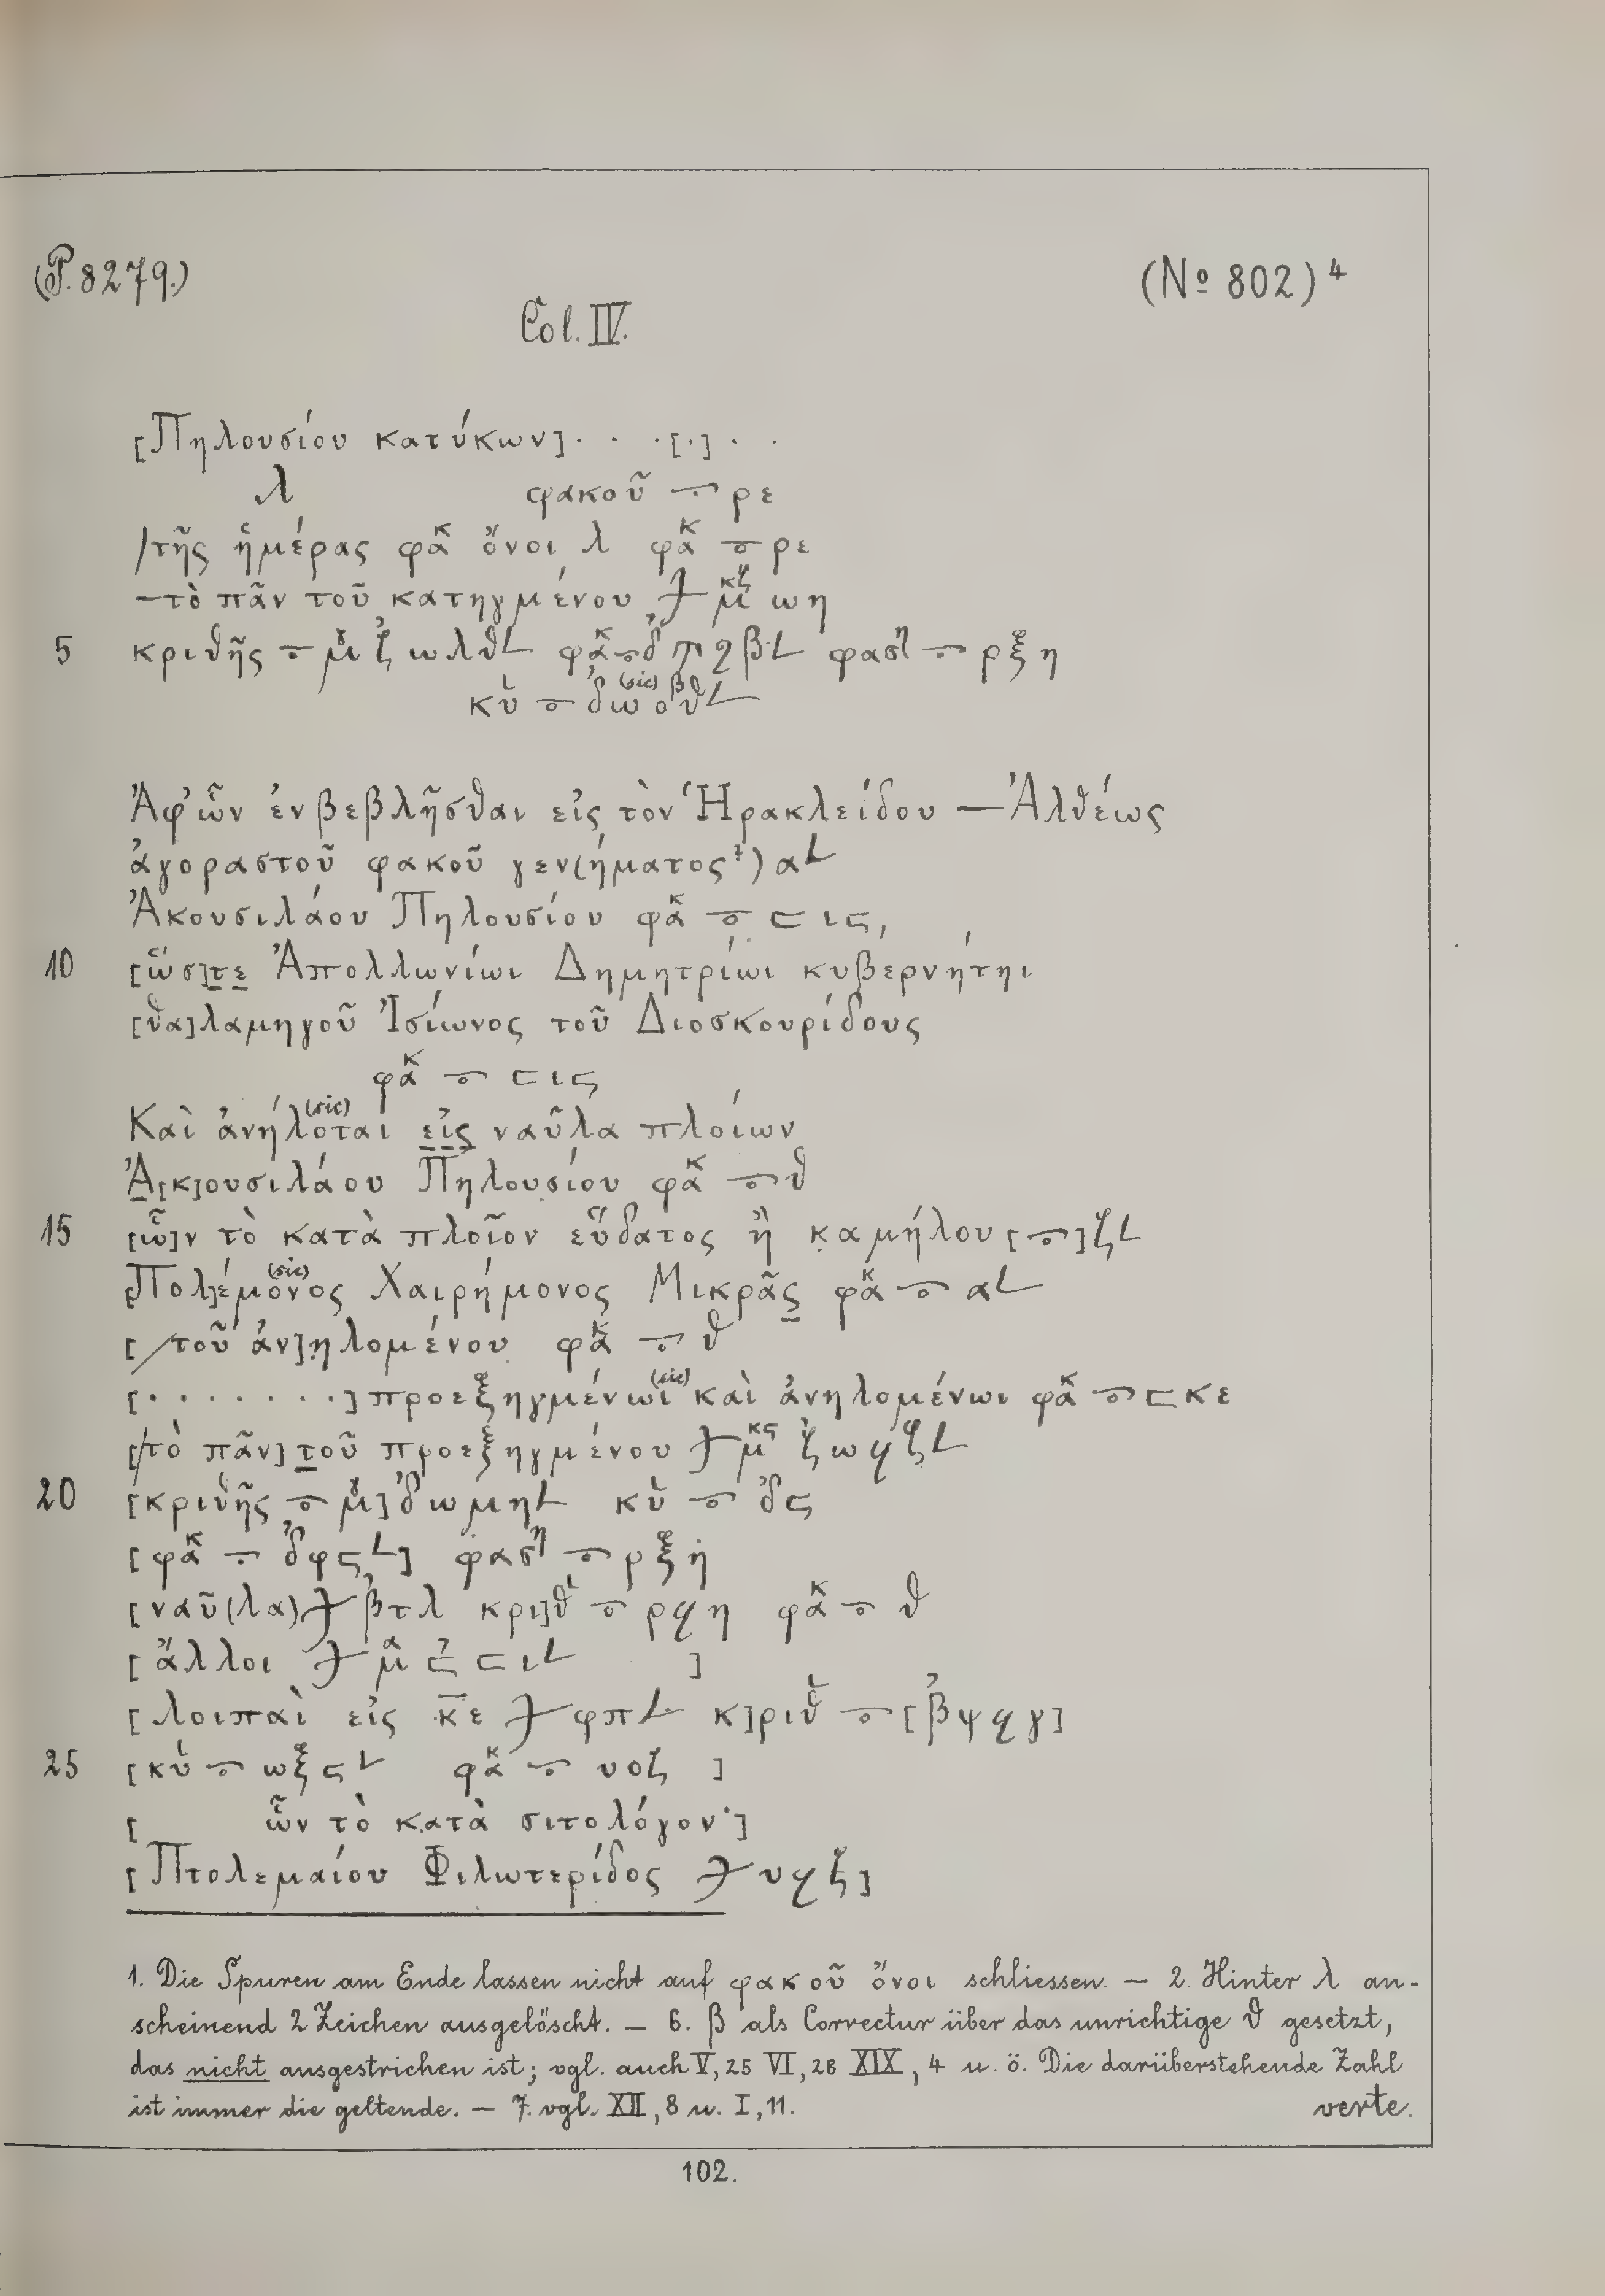 (P. 8279.)
(Nº 802)⁴
Col. IV.
[Πηλουσίου κατύκων] . . . [.] . .
λ φακοῦ ⨪ ρε
/τῆς ἡμέρας φακ ὄνοι λ φακ ⨪ ρε
—τὸ πᾶν τοῦ κατηγμένου ωη
5 κριθῆς φασ ρξη
κυ (sic)
Ἀφ' ὧν ἐνβεβλῆσθαι εἰς τὸν Ἡρακλείδου — Ἀλθέως
ἀγοραστοῦ φακοῦ γεν(ήματος?) α𐅵
Ἀκουσιλάου Πηλουσίου φακ ⨪ ϛιϛ,
10 [ὥσ]τε Ἀπολλωνίωι Δημητρίωι κυβερνήτηι
[θα]λαμηγοῦ Ἰσίωνος τοῦ Διοσκουρίδους
φακ ⨪ ϛιϛ
Καὶ ἀνήλοται (sic) εἰς ναῦλα πλοίων
Ἀ[κ]ουσιλάου Πηλουσίου φακ ⨪ θ
15 [ὧ]ν τὸ κατὰ πλοῖον εὕδατος ἢ καμήλου [⨪] ζ𐅵
[Πολ]έμονος (sic) Χαιρήμονος Μικρᾶς φακ ⨪ α𐅵
[/τοῦ ἀν]ηλομένου φακ ⨪ θ
[. . . . . . . .] προεξηγμένωι (sic) καὶ ἀνηλομένωι φακ ⨪ ϛκε
[/τὸ πᾶν] τοῦ προεξηγμένου
20 [κριθῆς ⨪ ] δωμη𐅵 κυ ⨪ δϛ
[φακ ⨪ δφϛ𐅵] φασ ⨪ ρξη
[ναῦ(λα) βτλ κρι]θ ⨪ ρϙη φακ ⨪ θ
[ἄλλοι ]
[λοιπαὶ εἰς κε φπ𐅵 κ]ριθ ⨪ [βψϙγ]
25 [κυ ⨪ ωξϛ𐅵 φακ ⨪ υοζ ]
[ ὧν τὸ κατὰ σιτολόγον·]
[Πτολεμαίου Φιλωτερίδος υϙζ]
1. Die Spuren am Ende lassen nicht auf φακοῦ ὄνοι schliessen. — 2. Hinter λ an-
scheinend 2 Zeichen ausgelöscht. — 6. β als Correctur über das unrichtige θ gesetzt,
das nicht ausgestrichen ist; vgl. auch V, 25 VI, 28 XIX, 4 u. ö. Die darüberstehende Zahl
ist immer die geltende. — 7. vgl. XII, 8 u. I, 11. verte.
102.